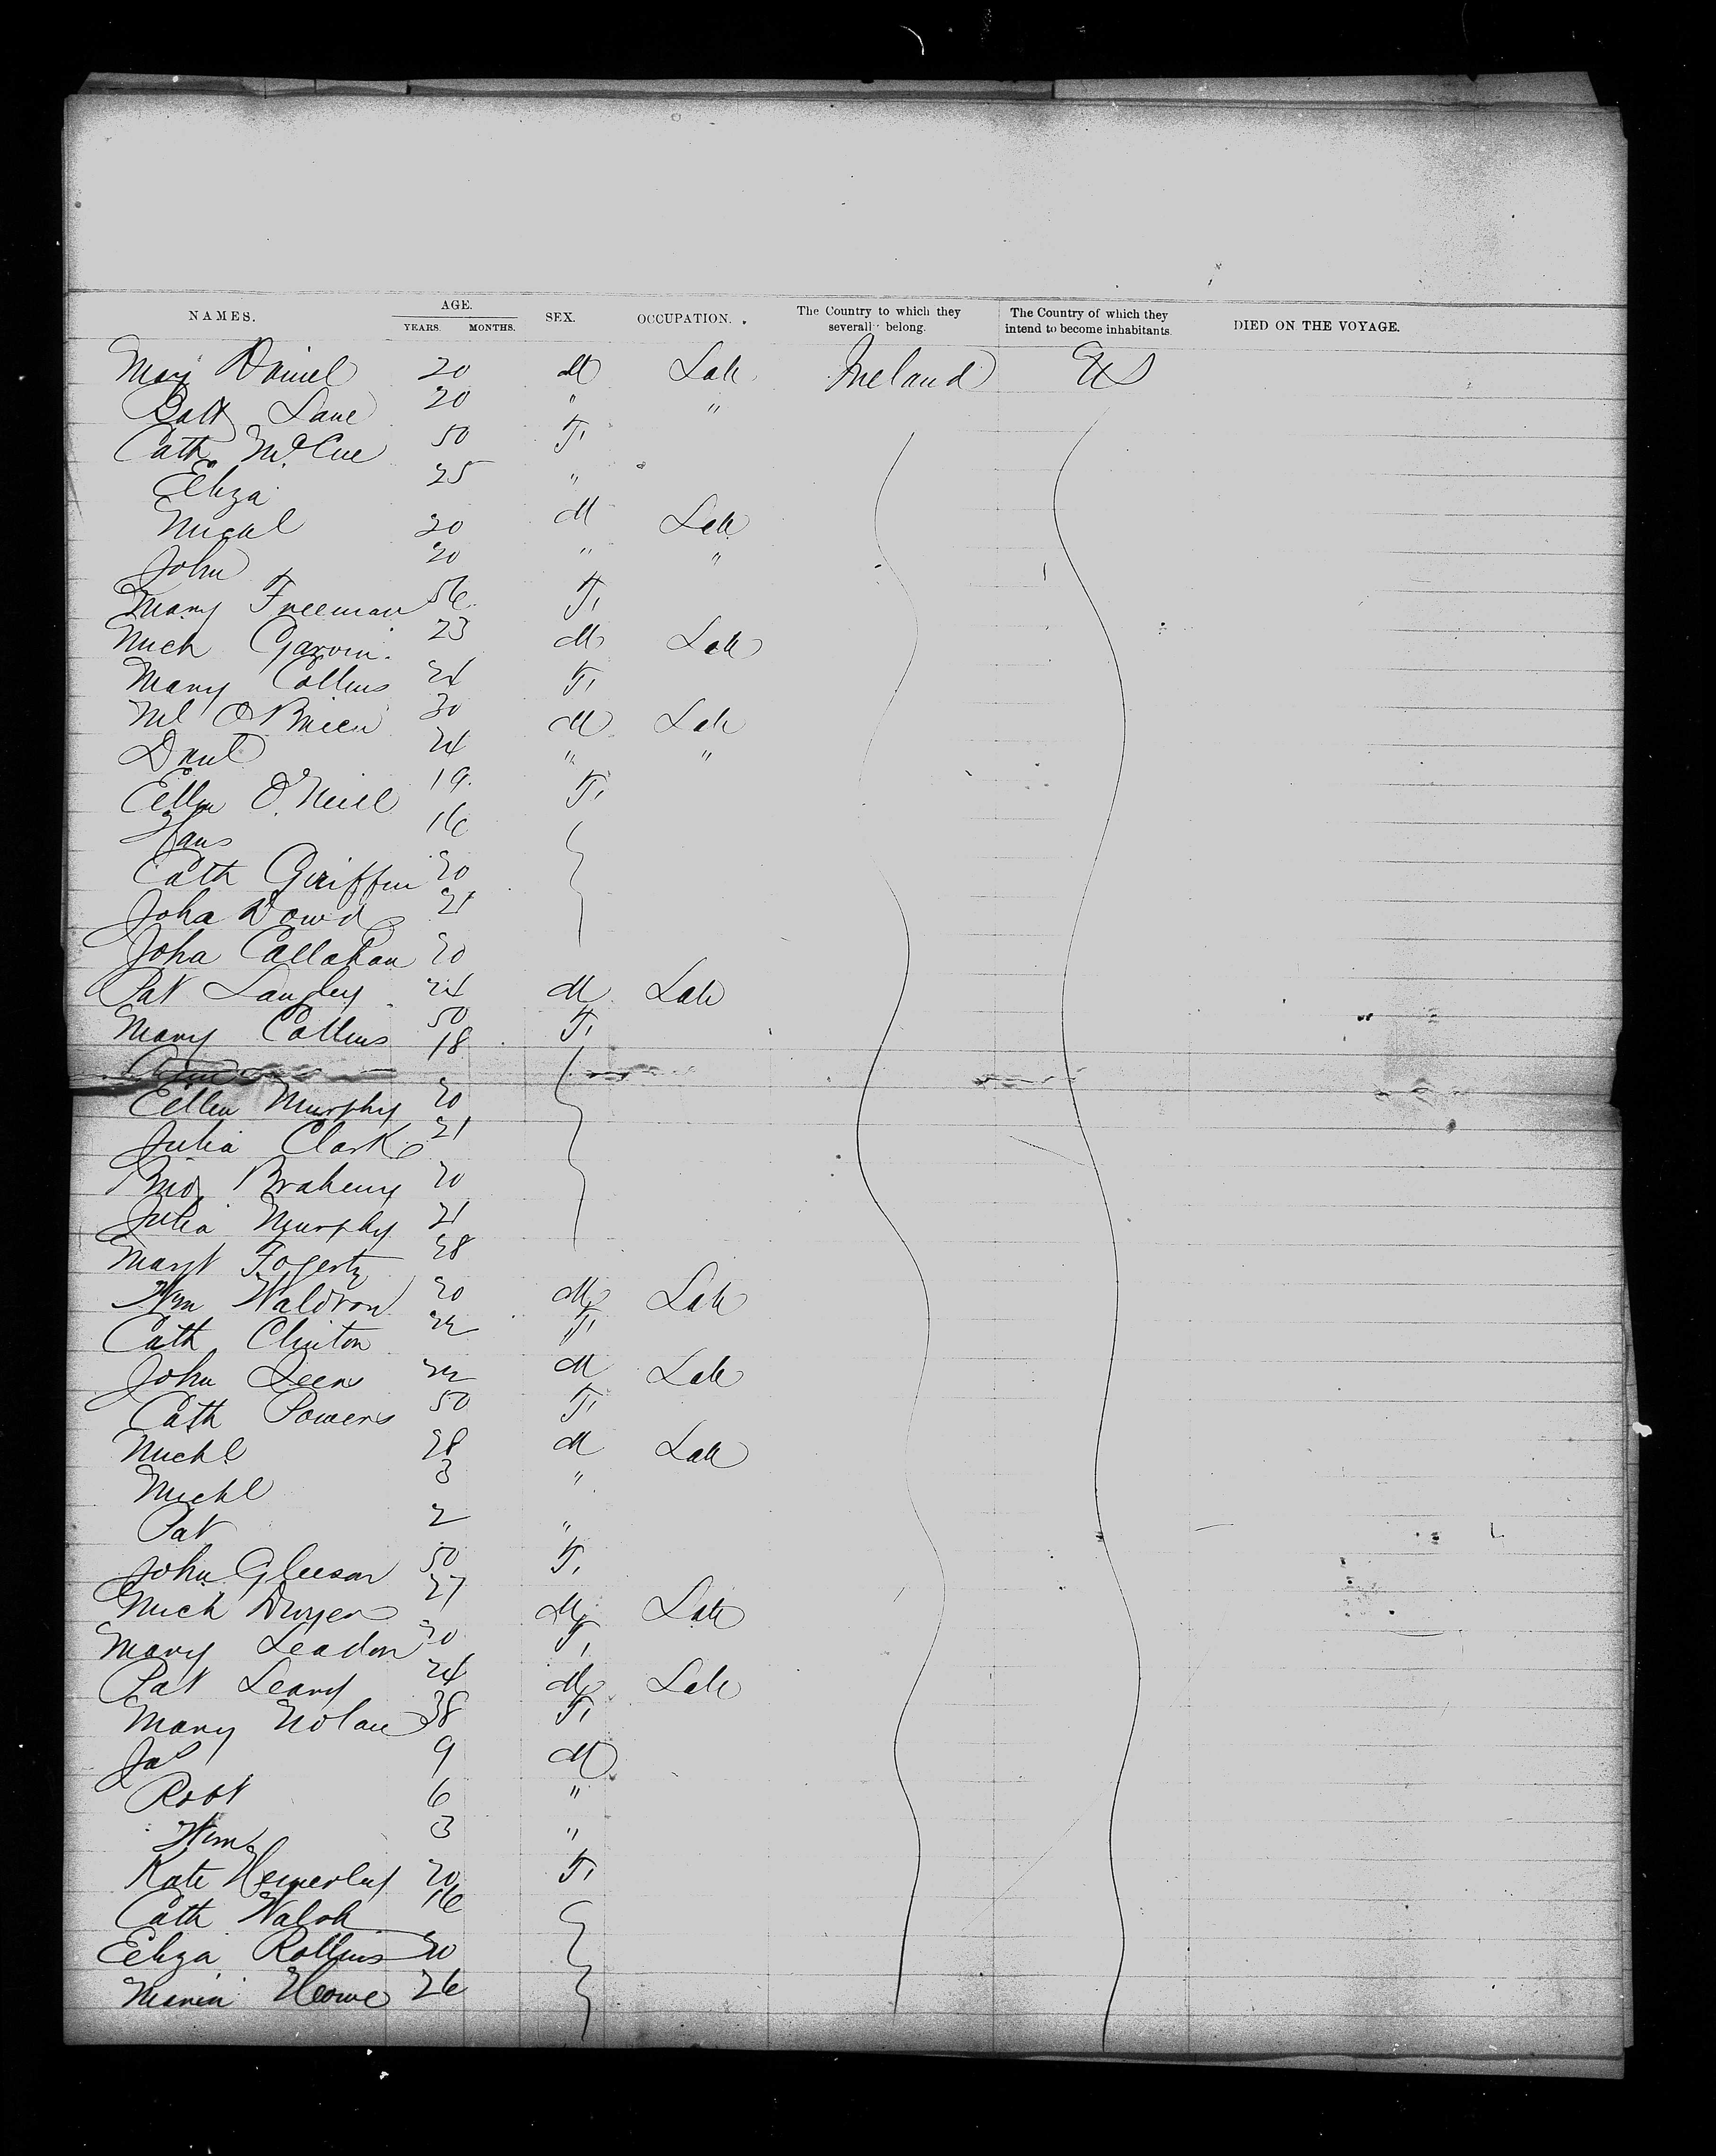 NAMES. AGE. YEARS. MONTHS. SEX. OCCUPATION. The Country to which they severally belong. The Country of which they intend to become inhabitants. DIED ON THE VOYAGE.
Daniel 20 M Lab Ireland US
Batt Lane 20 " "
Cath McCue 50 F
Eliza 25 "
Michl 20 M Lab
John 20 " "
Mary Freeman 56 F
Mich Garvin 23 M Lab
Mary Collins 24 F
Ml O'Brien 30 M Lab
Danl 24 " "
Ellen O'Neill 19 F
Hans 16
Cath Griffin 20
Joha Dowd 21
Joha Callahan 20
Pat Langley 24 M Lab
Mary Collins 50 F
18
Ellen Murphy 20
Julia Clark 21
Brid Braheny 20
Julia Murphy 21
Margt Fogerty 28
Wm Waldron 20 M Lab
Cath Clinton 22 F
John Leen 22 M Lab
Cath Powers 50 F
Michl 28 M Lab
Michl 3 "
Pat 2 "
John Gleeson 50 F
Mich Dwyer 27 M Lab
Mary Leadon 20 F
Pat Leary 24 M Lab
Mary Nolan 38 F
Jas 9 M
Robt 6 "
Wm 3 "
Kate 20 F
Cath Walsh 16
Eliza Rollins 20
Howe 26